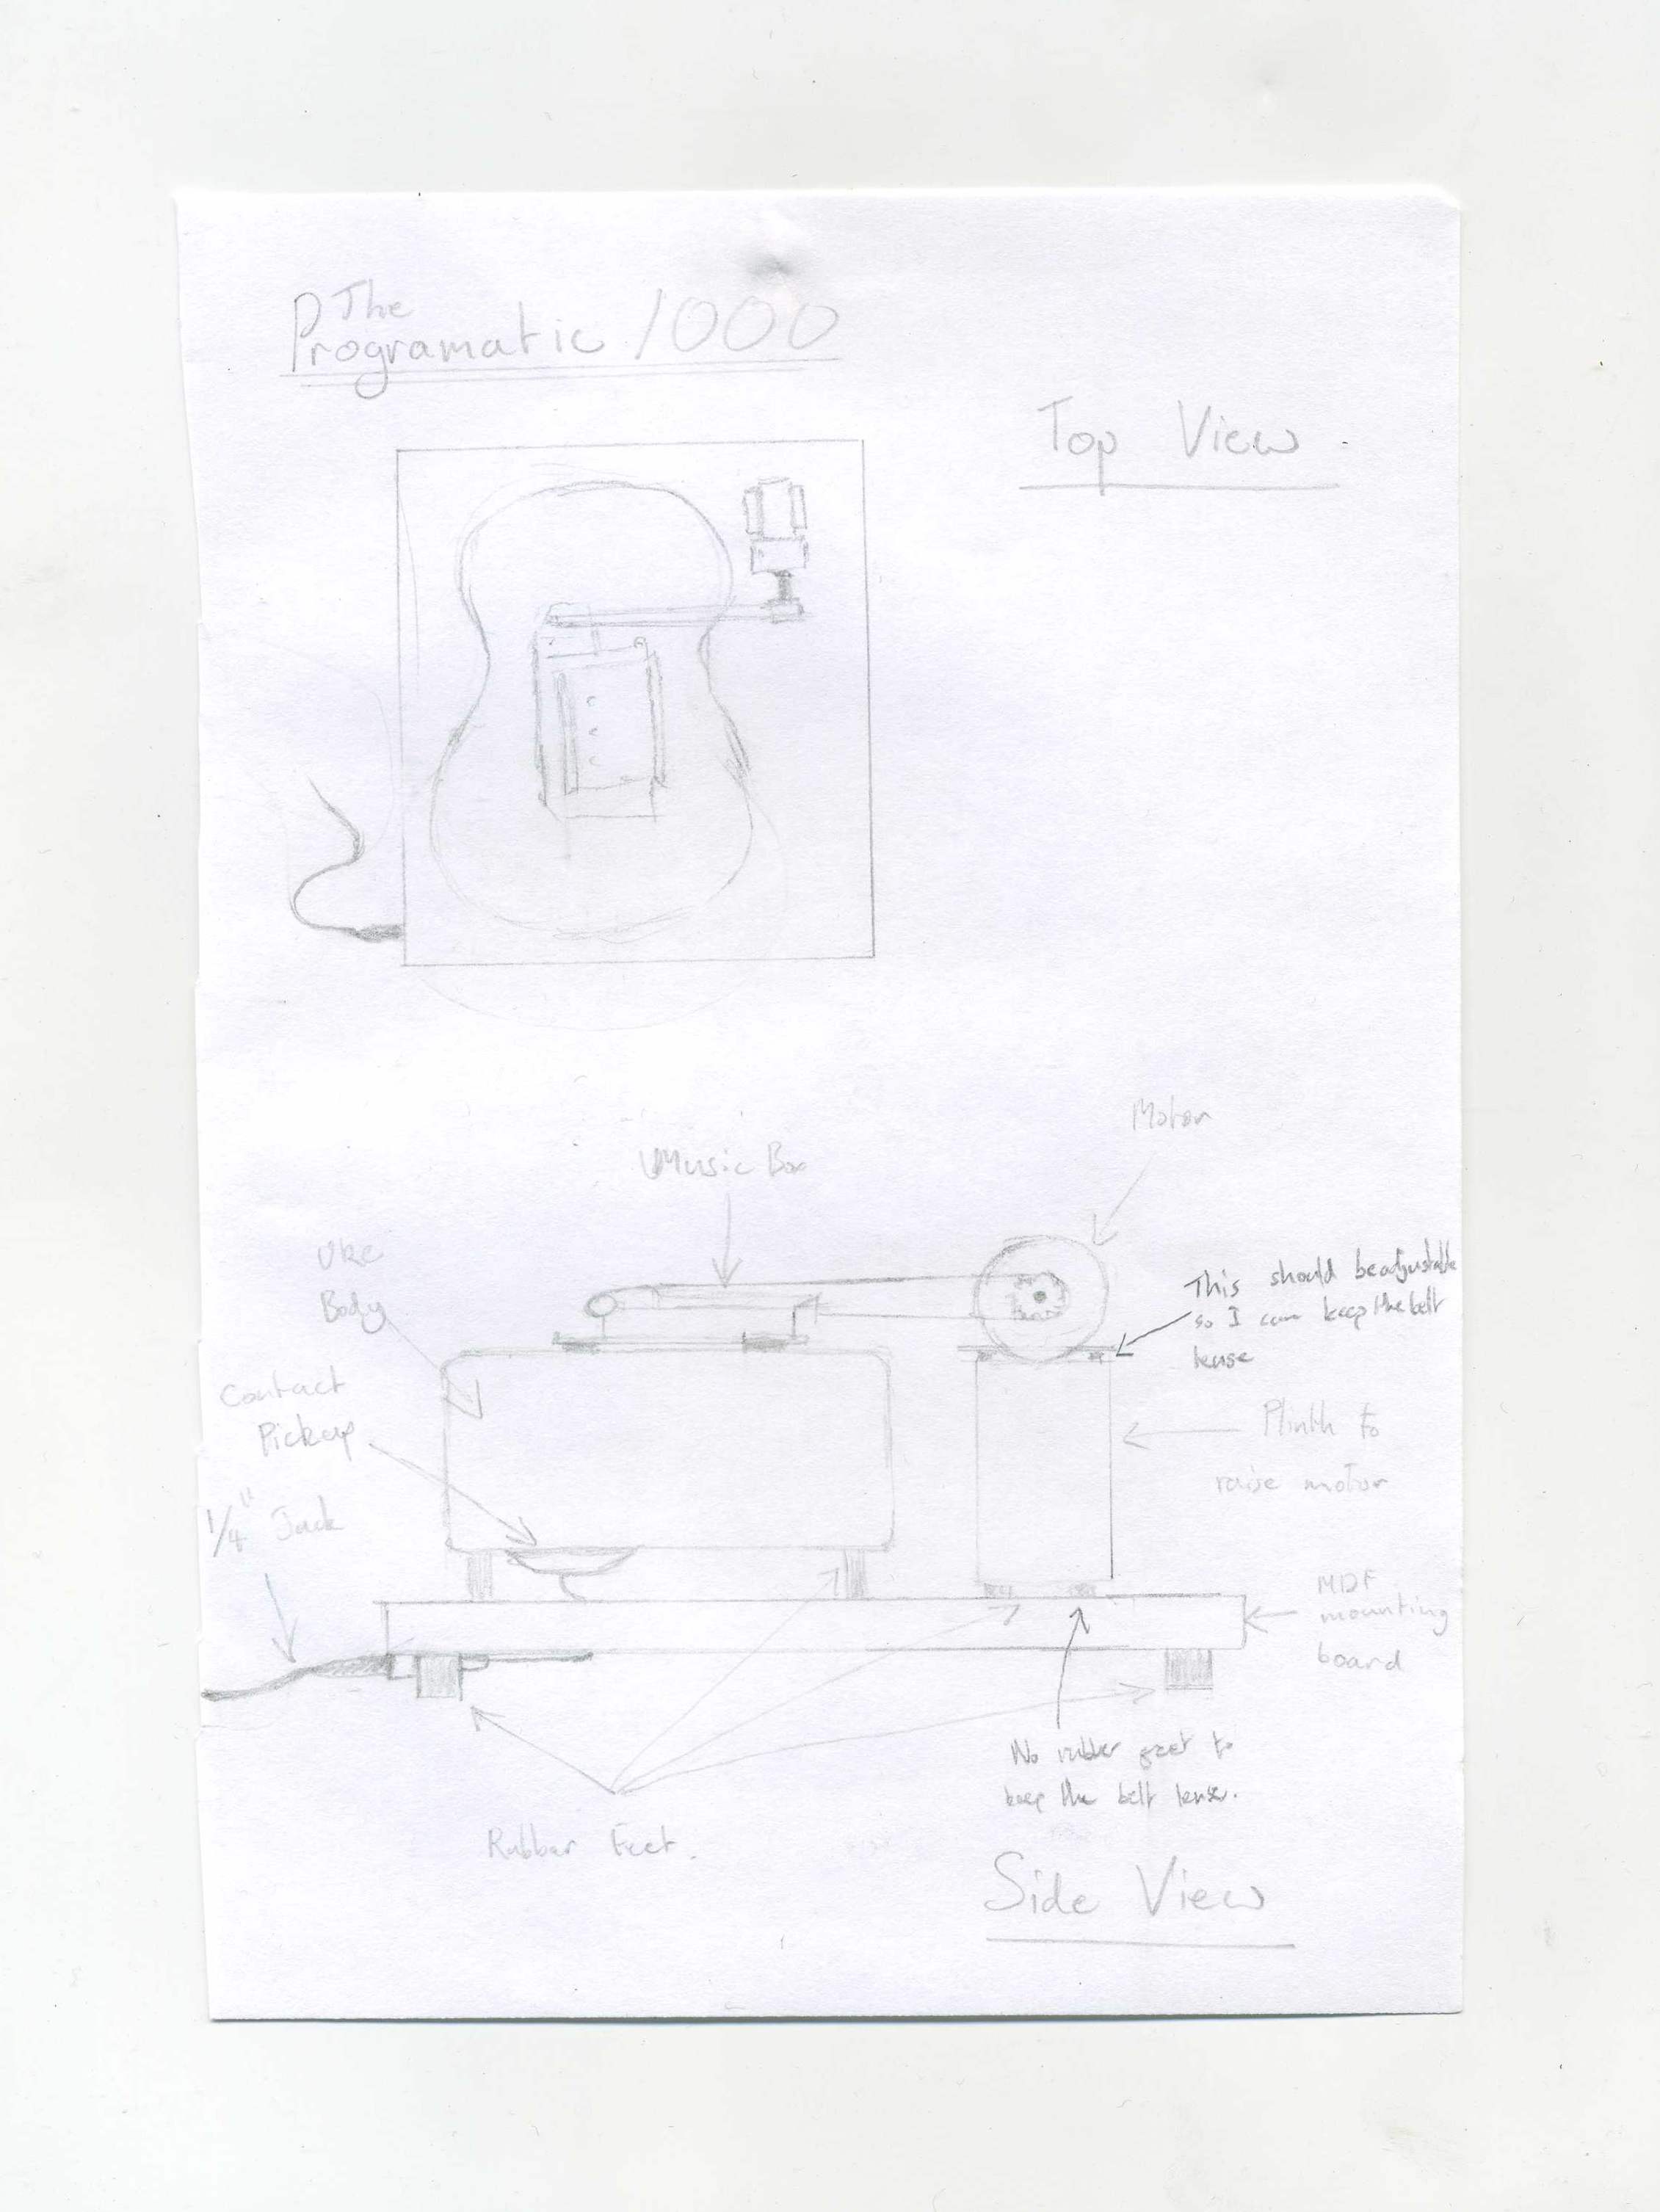 The
Programatic 1000
Top View
Motor
Music Box
Uke
Body
This should be adjustable
so I can keep the belt
tense
Contact
Pickup
Plinth to
raise motor
1/4" Jack
MDF
mounting
board
No rubber feet to
keep the belt tense.
Rubber Feet.
Side View